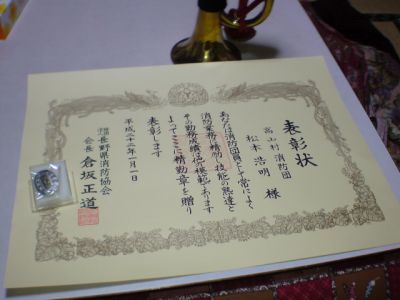 表彰状
高山村消防団
松本浩明 様
あなたは消防団員として常によく
消防業務に精励し技能の熟達と
その勤務成績は他の模範であります
よってここに精勤章を贈り
表彰します
平成二十三年一月一日
長野県消防協会
会長 倉坂正道